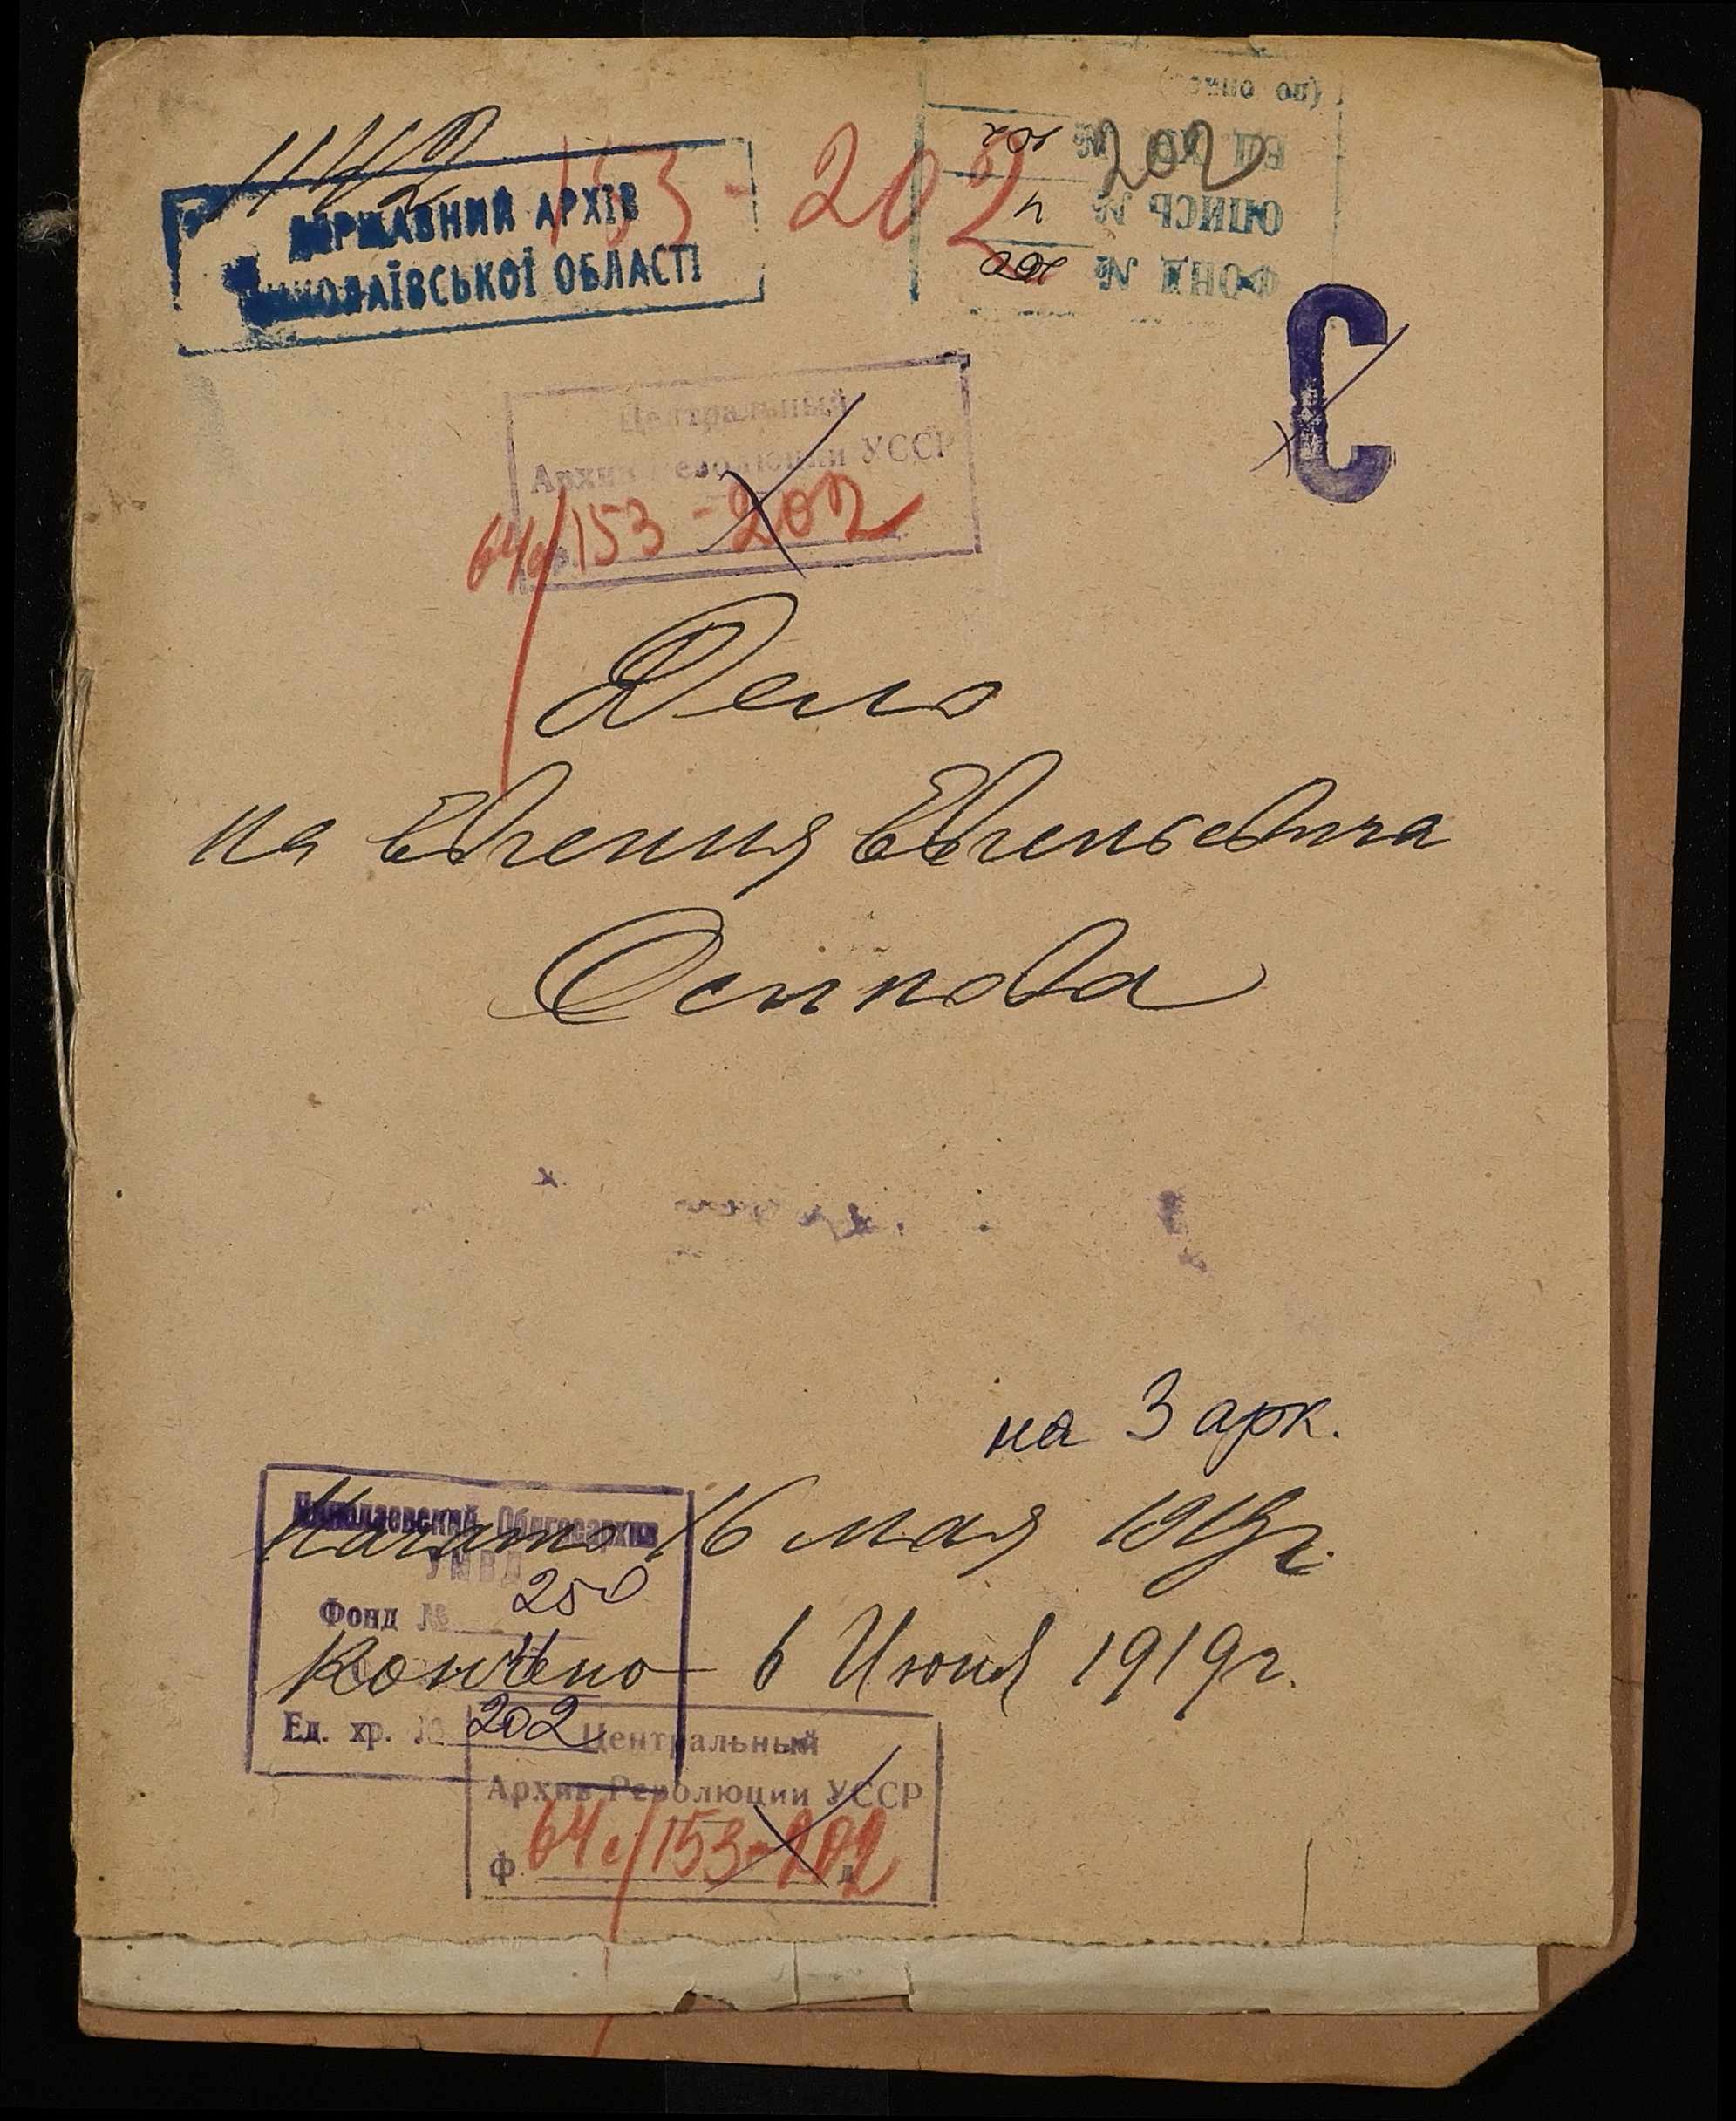 1142
153-202
ДЕРЖАВНИЙ АРХІВ
МИКОЛАЇВСЬКОЇ ОБЛАСТІ
202
(по описи)
ЕД. ХР. № 202
ОПИСЬ № 4
ФОНД №
С
Центральный
Архив Революции УССР
64с/153-202
Дело
на Евгения Евгеньевича
Осипова
на 3 арк.
Начато 16 мая 1919г.
Кончено 6 Июня 1919г.
Николаевский Облгосархив
УМВД
Фонд № 250
Ед. хр. № 202
Центральный
Архив Революции УССР
ф. 64с/153-202